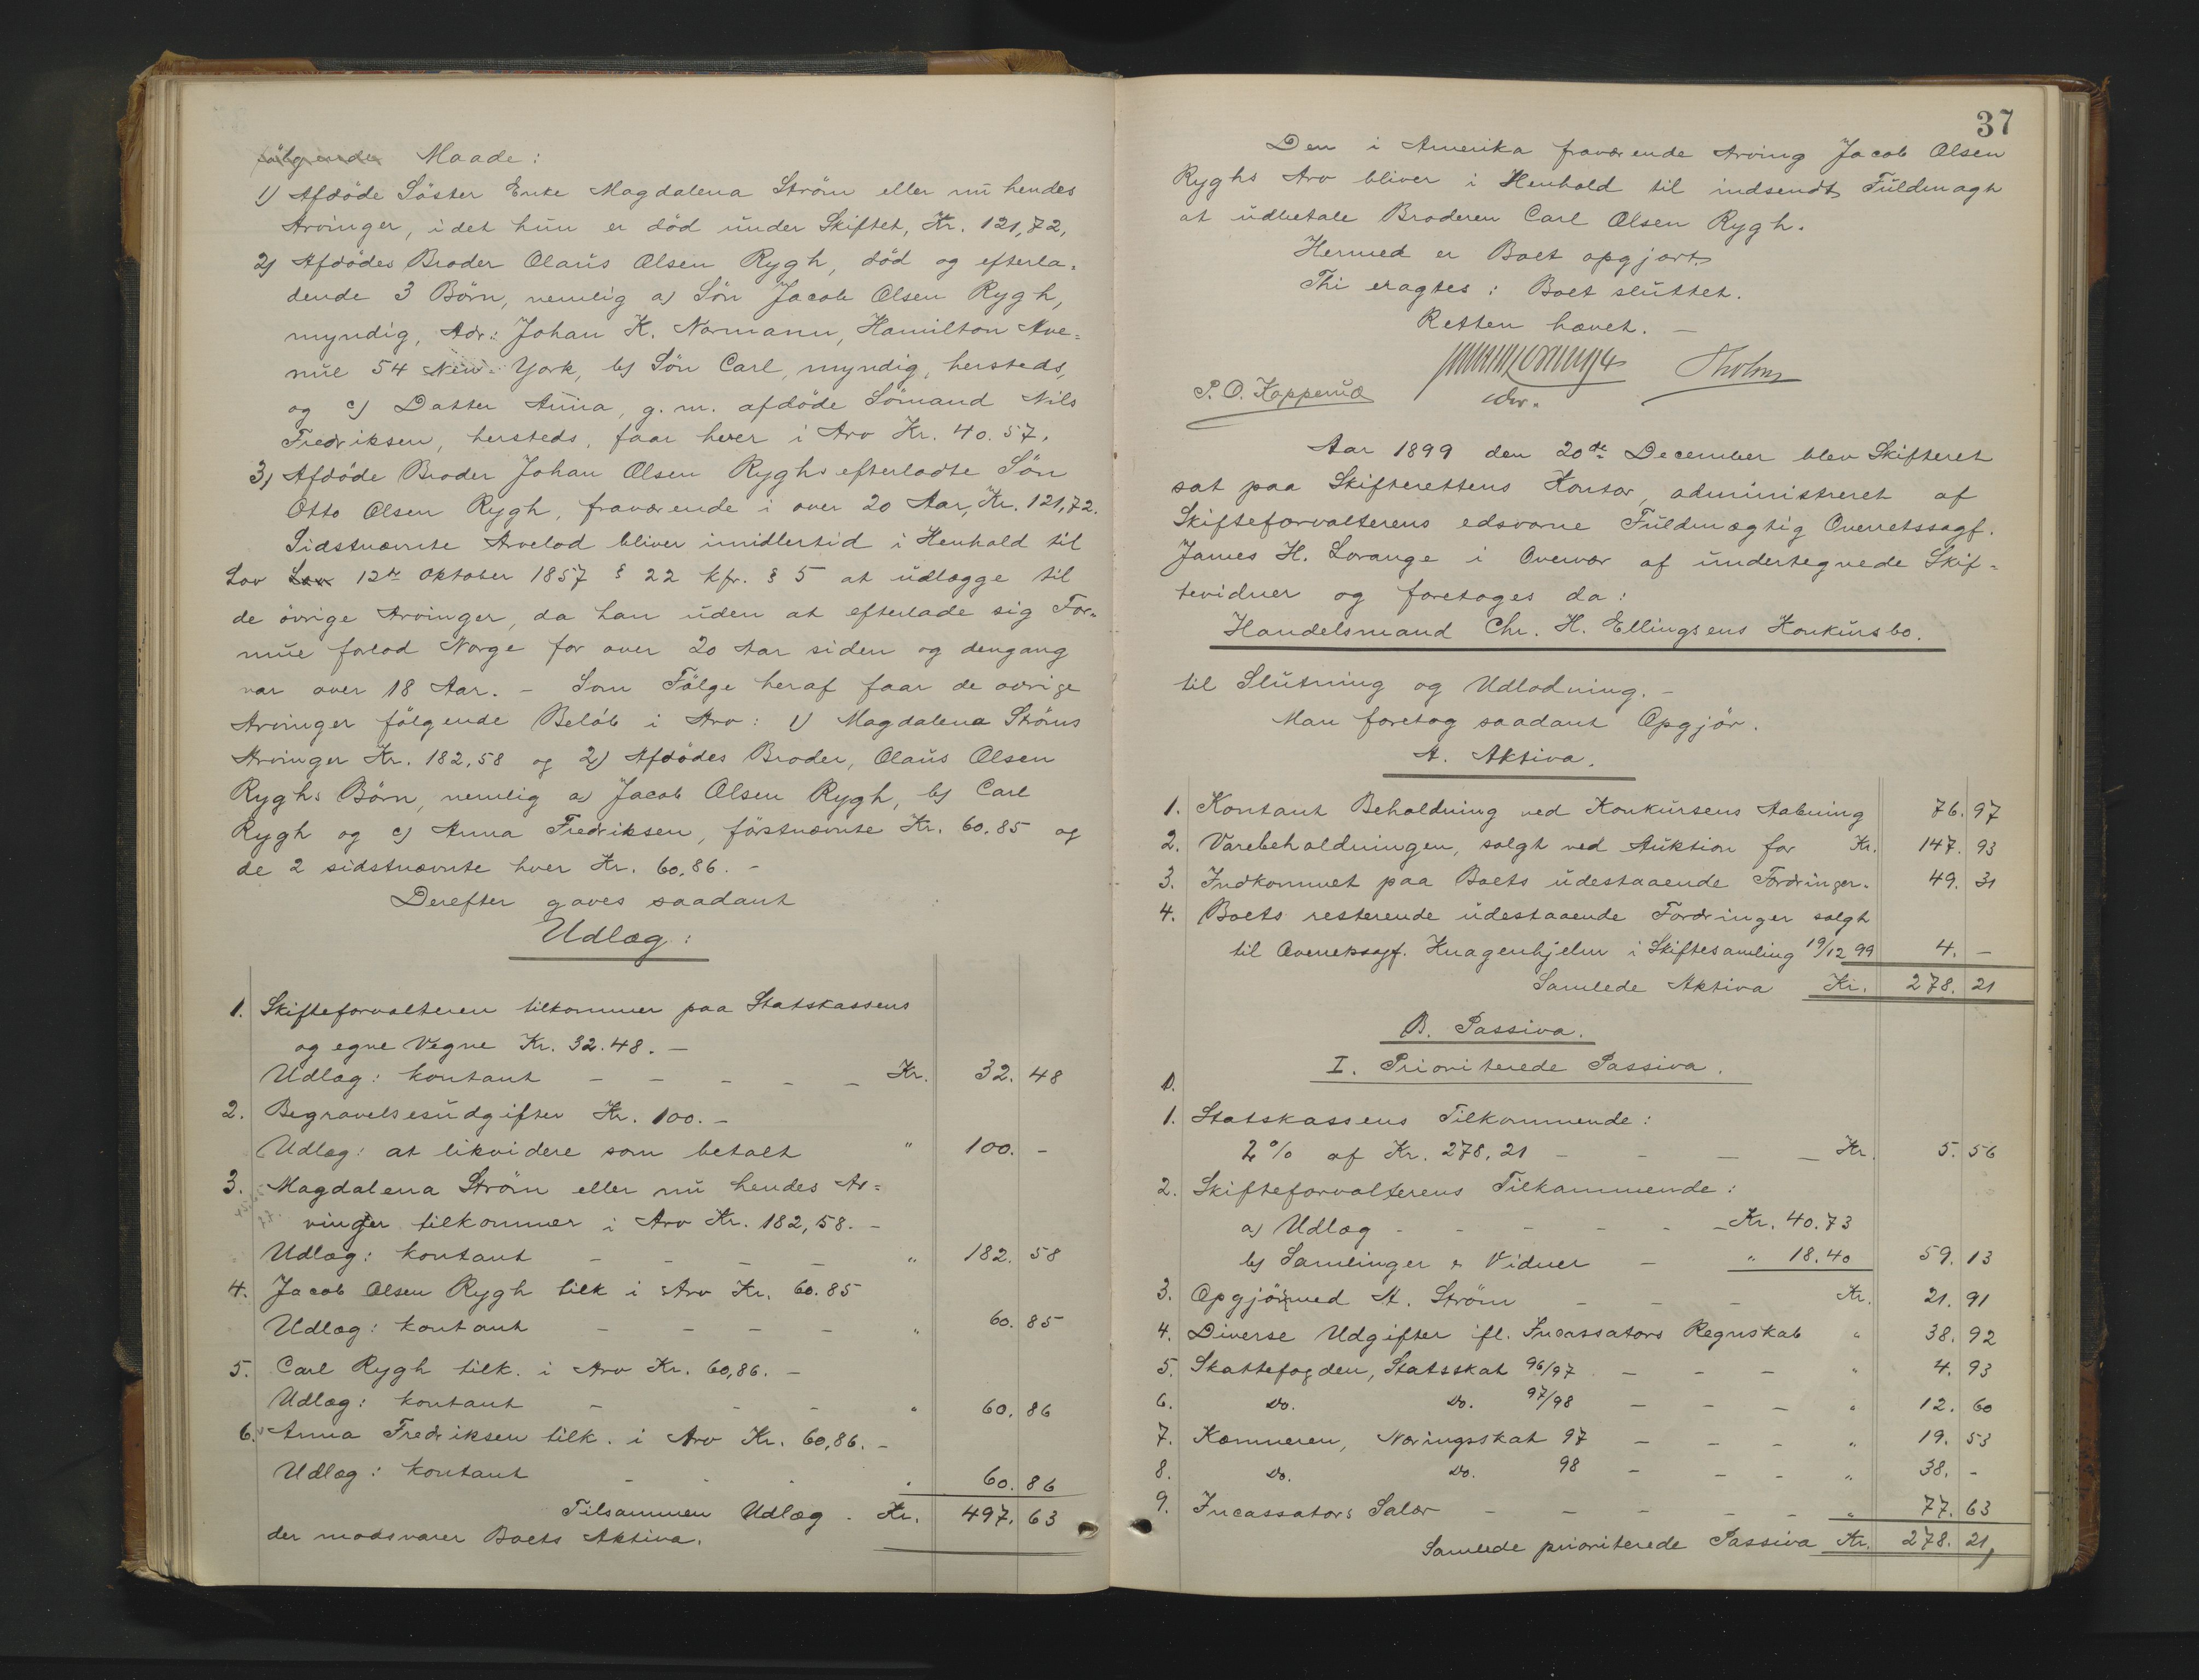 følgende Maade:
1) Afdöde Söster Enke Magdalena Ström eller nu hendes
Arvinger, idet hun er död under Skiftet, Kr. 121,72,
2) Afdödes Broder Olaus Olsen Rygh, död og efterla-
dende 3 Börn, nemlig a) Sön Jacob Olsen Rygh,
myndig, Adr: Johan K. Normann, Hamilton Ave-
nue 54 New-York, b) Sön Carl, myndig, hersteds,
og c) Datter Anna, g. m. afdöde Sömand Nils
Fredriksen, hersteds, faar hver i Arv Kr. 40.57.
3) Afdöde Broder Johan Olsen Ryghs efterladte Sön
Otto Olsen Rygh, fraværende i over 20 Aar, Kr. 121,72.
Sidstnævnte Arvelod bliver imidlertid i Henhold til
Lov Lov 12te Oktober 1857 § 22 kfr. § 5 at udlægge til
de övrige Arvinger, da han uden at efterlade sig For-
mue forlod Norge for over 20 Aar siden og dengang
var over 18 Aar. - Som Fölge heraf faar de övrige
Arvinger fölgende Belöb i Arv: 1) Magdalena Ströms
Arvinger Kr. 182,58 og 2) Afdödes Broder, Olaus Olsen
Ryghs Börn, nemlig a) Jacob Olsen Rygh, b) Carl
Rygh og c) Anna Fredriksen, förstnævnte Kr. 60.85 og
de 2 sidstnævnte hver Kr. 60,86. -
Derefter gaves saadant
Udlæg:
1. Skifteforvalteren tilkommer paa Statskassens
og egne Vegne Kr. 32.48. -
Udlæg: kontant - - - - - Kr. 32. 48
2. Begravelsesudgifter Kr. 100. -
Udlæg: at likvidere som betalt " 100. -
3. Magdalena Ström eller nu hendes Ar-
vinger tilkommer i Arv Kr. 182,58. -
Udlæg: kontant - - - - " 182. 58
4. Jacob Olsen Rygh tilk i Arv Kr. 60.85
Udlæg: kontant - - - - " 60. 85
5. Carl Rygh tilk. i Arv Kr. 60,86. -
Udlæg: kontant - - - " 60. 86
6. Anna Fredriksen tilk. i Arv Kr. 60,86. -
Udlæg: kontant - - - " 60. 86
Tilsammen Udlæg . Kr. 497. 63
der modsvarer Boets Aktiva.
37
Den i Amerika fraværende Arving Jacob Olsen
Ryghs Arv bliver i Henhold til indsendt Fuldmagt
at udbetale Broderen Carl Olsen Rygh.
Hermed er Boet opgjort.
Thi eragtes: Boet sluttet.
Retten hævet. -
P. O. Kopperud
Aar 1899 den 20de December blev Skifteret
sat paa Skifterettens Kontor, administreret af
Skifteforvalterens edsvorne Fuldmægtig Overretssagf.
James H. Lorange i Overvær af undertegnede Skif-
tevidner og foretoges da:
Handelsmand Chr. H. Ellingsens Konkursbo.
til Slutning og Udlodning. -
Man foretog saadant Opgjör.
A. Aktiva.
1. Kontant Beholdning ved Konkursens Aabning 76. 97
2. Varebeholdningen, solgt ved Auktion for Kr. 147. 93
3. Indkommet paa Boets udestaaende Fordringer. 49. 31
4. Boets resterende udestaaende Fordringer solgt
til Overretssagf. Knagenhjelm i Skiftesamling 19/12 99 4. -
Samlede Aktiva Kr. 278. 21
B. Passiva.
I. Prioriterede Passiva.
1. Statskassens Tilkommende:
2% af Kr. 278,21 - - - - Kr. 5. 56
2. Skifteforvalterens Tilkommende:
a) Udlæg - - - - - - Kr. 40.73
b) Samlinger & Vidner - " 18.40 59. 13
3. Opgjör med A. Ström - - - Kr. 21. 91
4. Diverse Udgifter ifl. Incassators Regnskab " 38. 92
5. Skattefogden, Statsskat 96/97 - - - " 4. 93
6. Do. Do. 97/98 - - - " 12. 60
7. Kæmneren, Næringsskat 97 - - - " 19. 53
8. Do. Do. 98 - - - " 38. -
9. Incassators Salær - - - - - " 77. 63
Samlede prioriterede Passiva Kr. 278. 21,